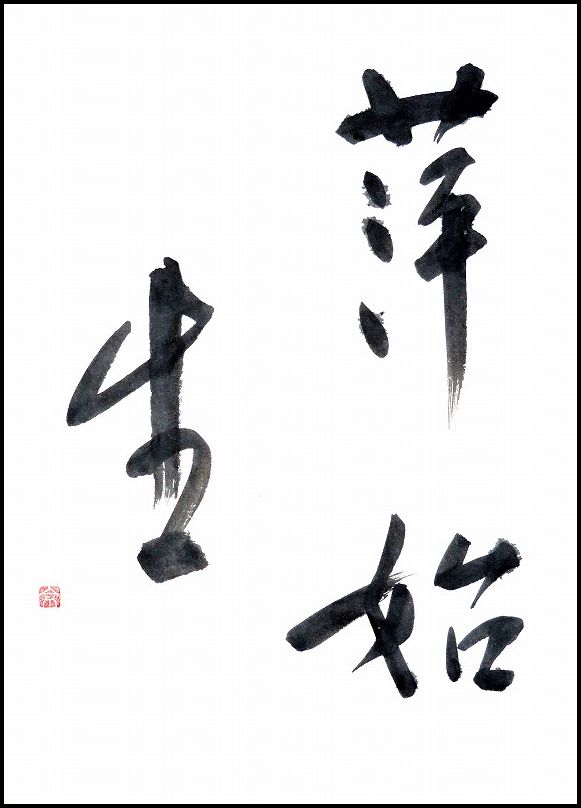 萍始
生